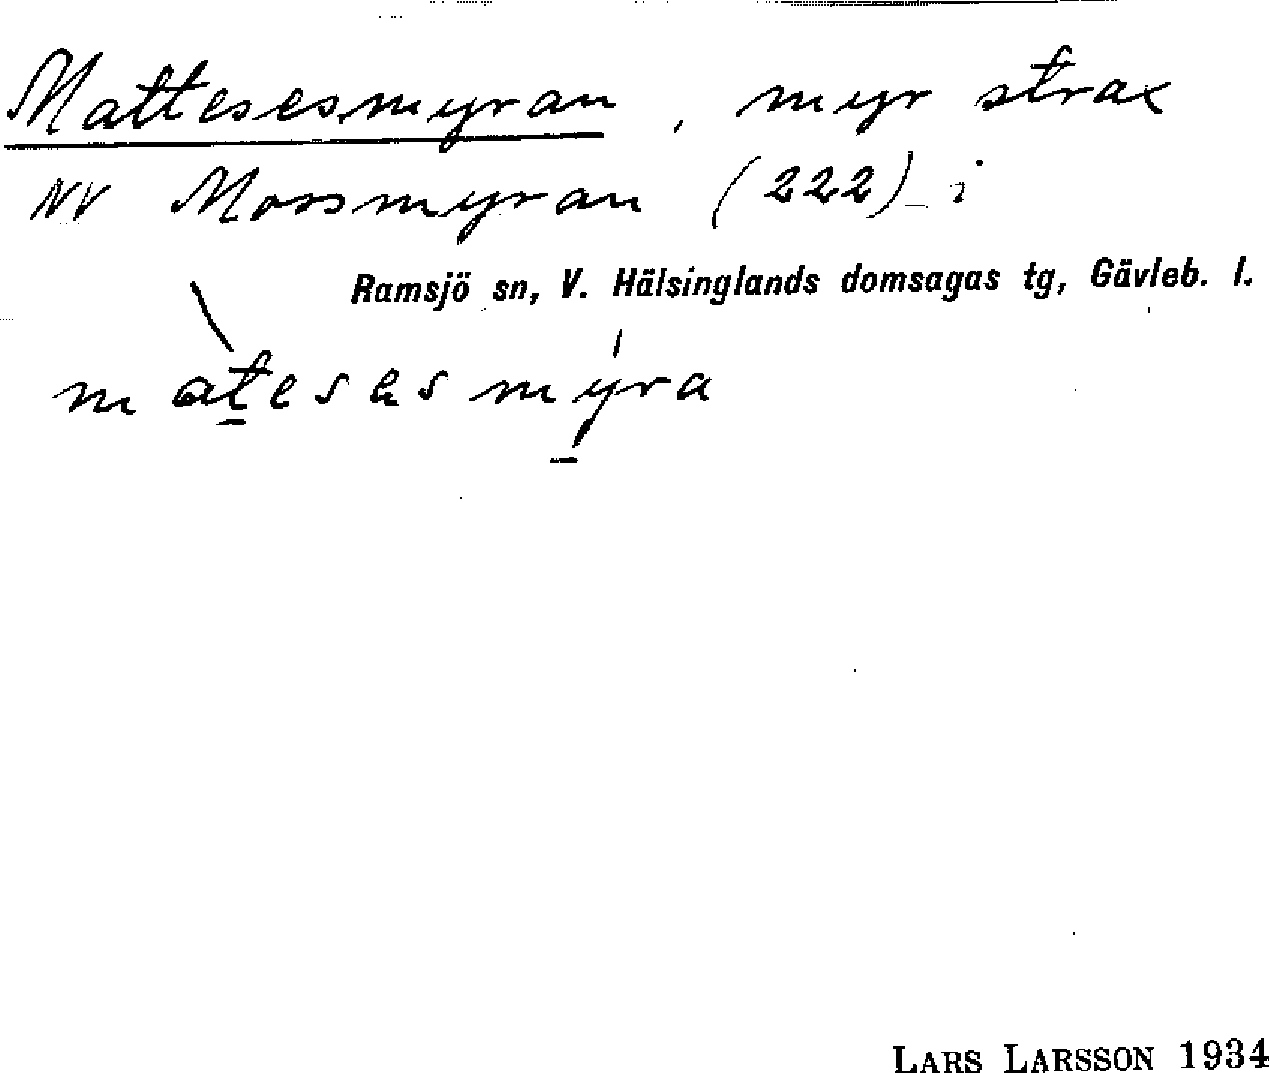 Mattesesmyran, myr strax
NV Mossmyran (222) i
Ramsjö sn, V. Hälsinglands domsagas tg, Gävleb. l.
matesesmyra
LARS LARSSON 1934